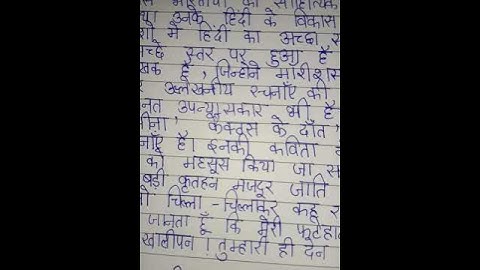 भारतीयों का साहित्यिक
उनके हिंदी के विकास
में हिंदी का अच्छा
स्तर पर हुआ है
है, जिन्होंने मारीशस
उल्लेखनीय रचनाएँ की
उपन्यासकार भी है
कैक्टस के दाँत'
है। इनकी कविता
को महसूस किया जा स
बड़ी कृतहन मजदूर जाति
चिल्ला-चिल्लाकर कह र
जानता हूँ कि मेरी फूटेहा
खालीपन। तुम्हारी ही देन